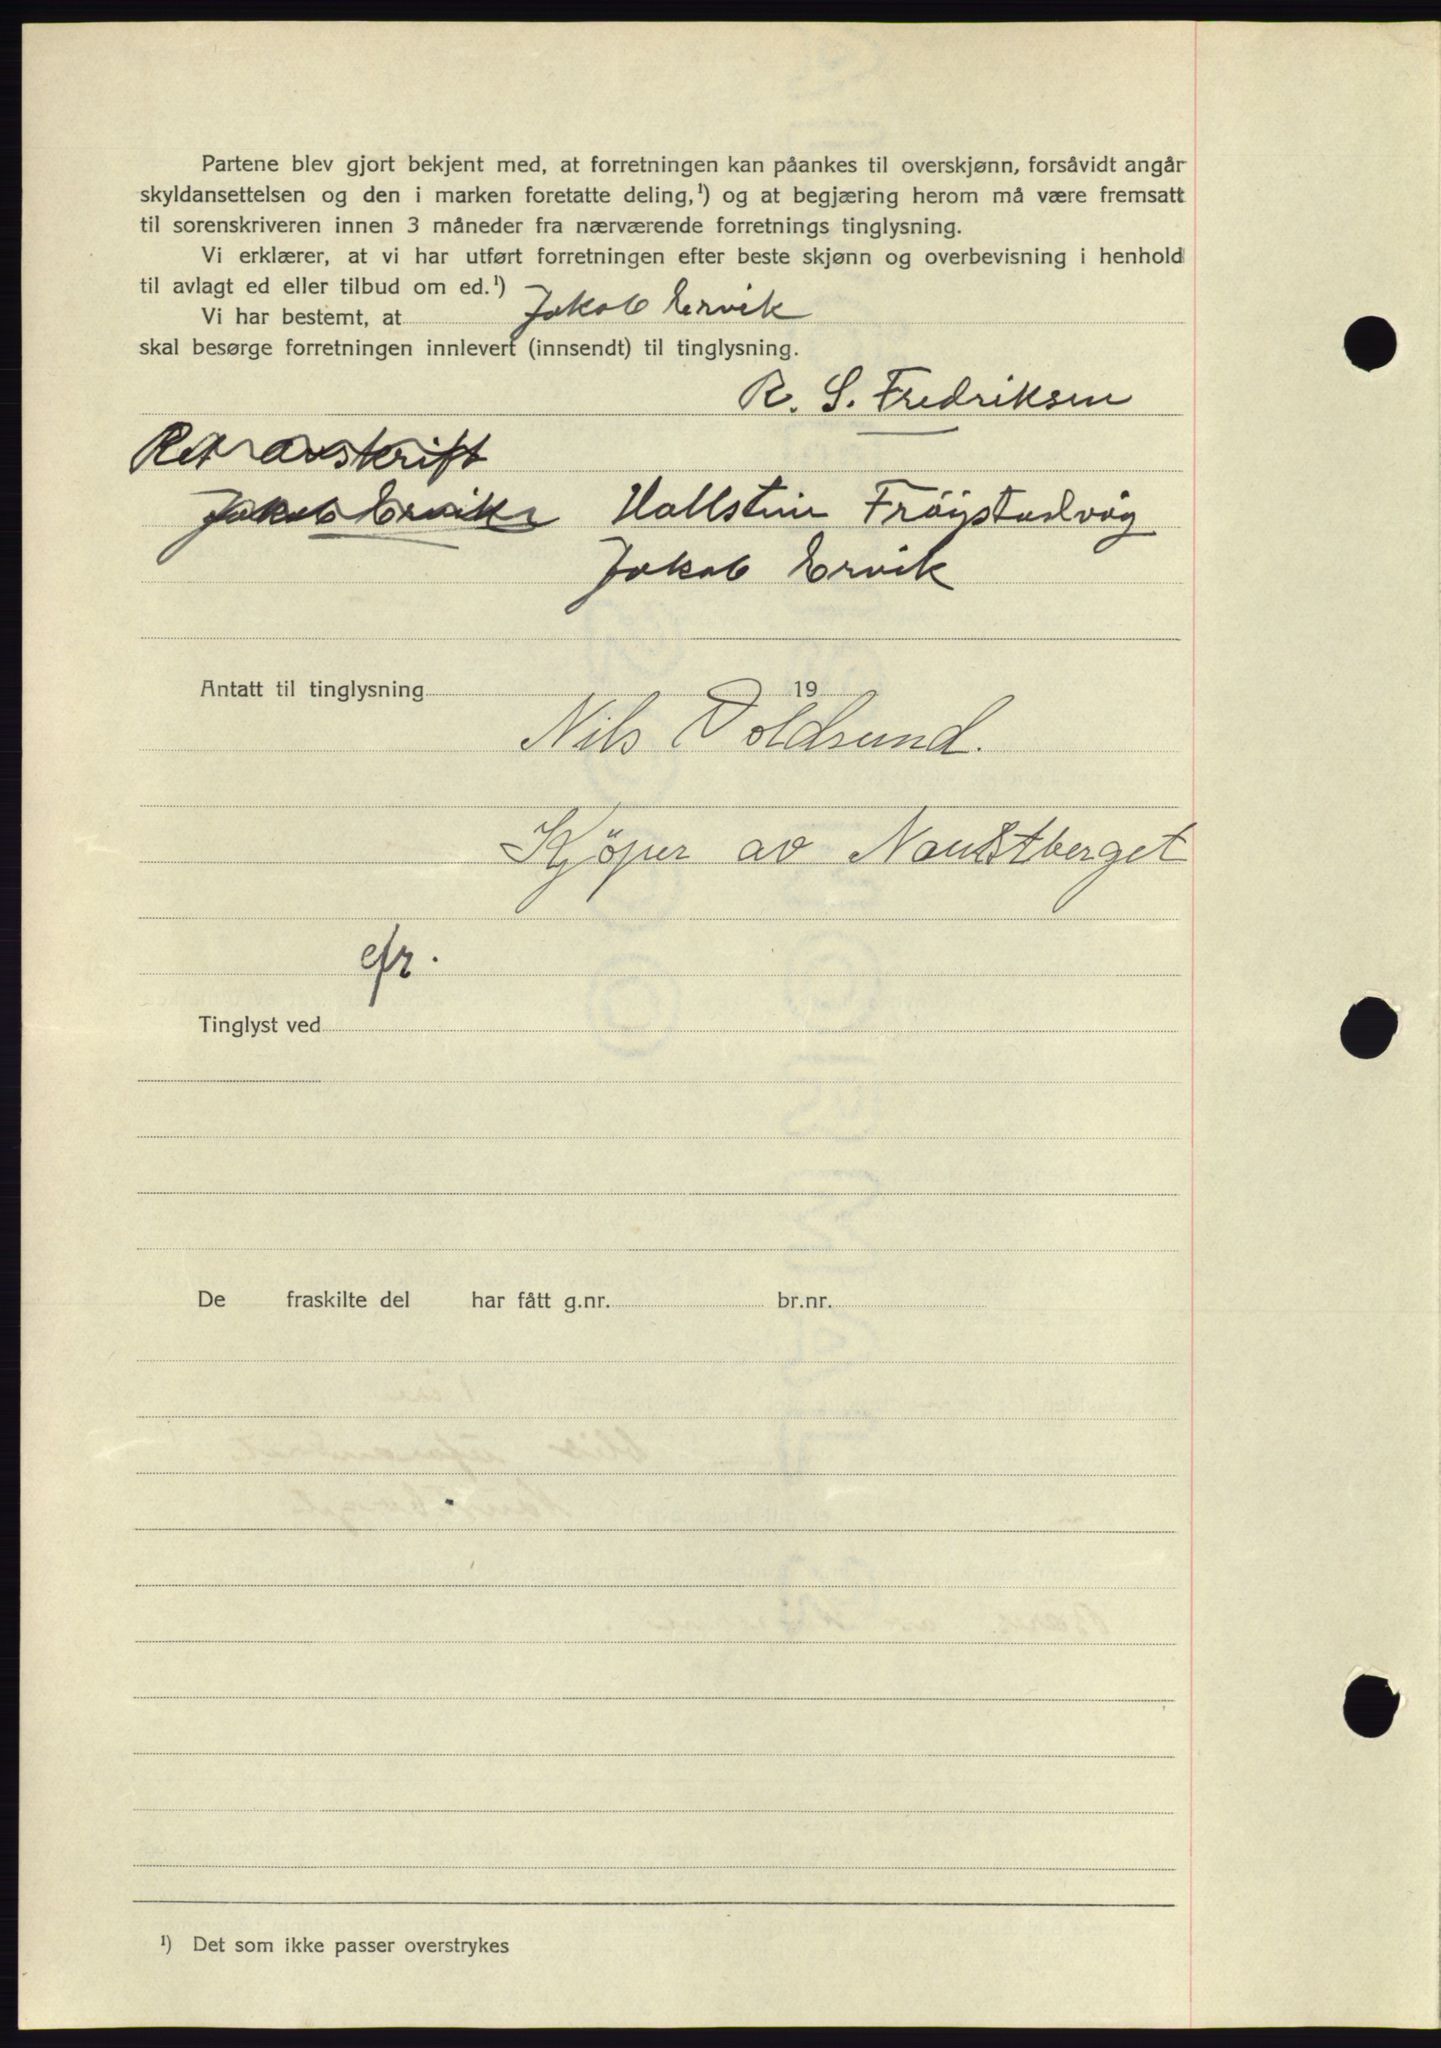 Partene blev gjort bekjent med, at forretningen kan påankes til overskjønn, forsåvidt angår
skyldansettelsen og den i marken foretatte deling,¹) og at begjæring herom må være fremsatt
til sorenskriveren innen 3 måneder fra nærværende forretnings tinglysning.
Vi erklærer, at vi har utført forretningen efter beste skjønn og overbevisning i henhold
til avlagt ed eller tilbud om ed.¹)
Vi har bestemt, at Jakob Ervik
skal besørge forretningen innlevert (innsendt) til tinglysning.
R. S. Fredriksen
Ret avskrift
Jakob Ervik Hallstein Fröystadvåg
Jakob Ervik
Antatt til tinglysning 19
Nils Voldsund.
Kjöper av Naustberget
efr.
Tinglyst ved
De fraskilte del har fått g.nr. br.nr.
¹) Det som ikke passer overstrykes